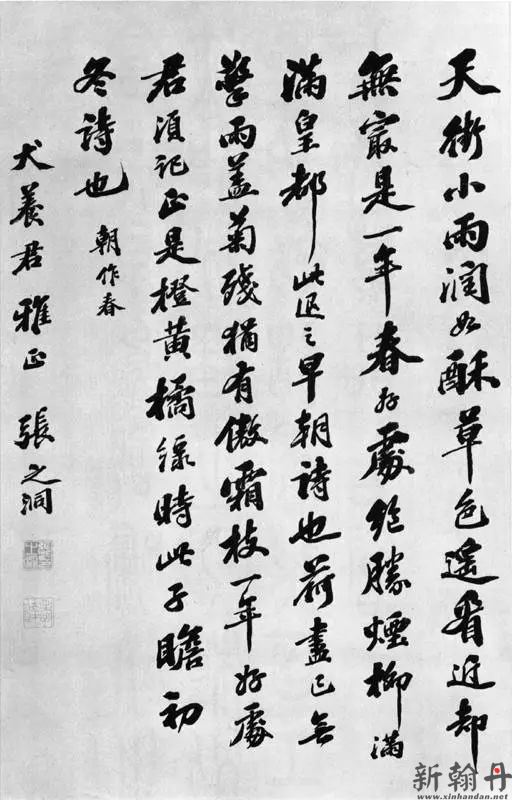 天街小雨潤如酥草色遙看近却
無冣是一年春好處絕勝煙柳滿
滿皇都此退之早朝詩也荷盡已无
擎雨蓋菊殘猶有傲霜枝一年好處
君須記正是橙黃橘綠時此子瞻初
冬詩也 朝作春
犬養君雅正 張之洞
新翰丹
www.xinhandan.net